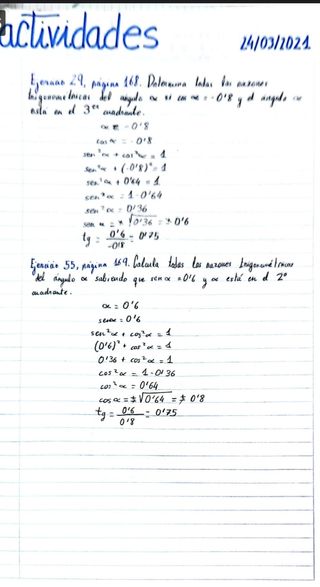 actividades
24/03/2021
Ejercicio 29, página 168. Determina todas las razones
trigonométricas del ángulo α si cos α = -0'8 y el ángulo α
está en el 3er cuadrante.
α = -0'8
cos α = -0'8
sen²α + cos²α = 1
sen²α + (-0'8)² = 1
sen²α + 0'64 = 1
sen²α = 1-0'64
sen²α = 0'36
sen α = ±√0'36 = ± 0'6
tg = 0'6/-0'8 = 0'75
Ejercicio 55, página 169. Calcula todas las razones trigonométricas
del ángulo α sabiendo que sen α = 0'6 y α está en el 2º
cuadrante.
α = 0'6
sen α = 0'6
sen²α + cos²α = 1
(0'6)² + cos²α = 1
0'36 + cos²α = 1
cos²α = 1-0'36
cos²α = 0'64
cos α = ±√0'64 = ± 0'8
tg = 0'6/0'8 = 0'75